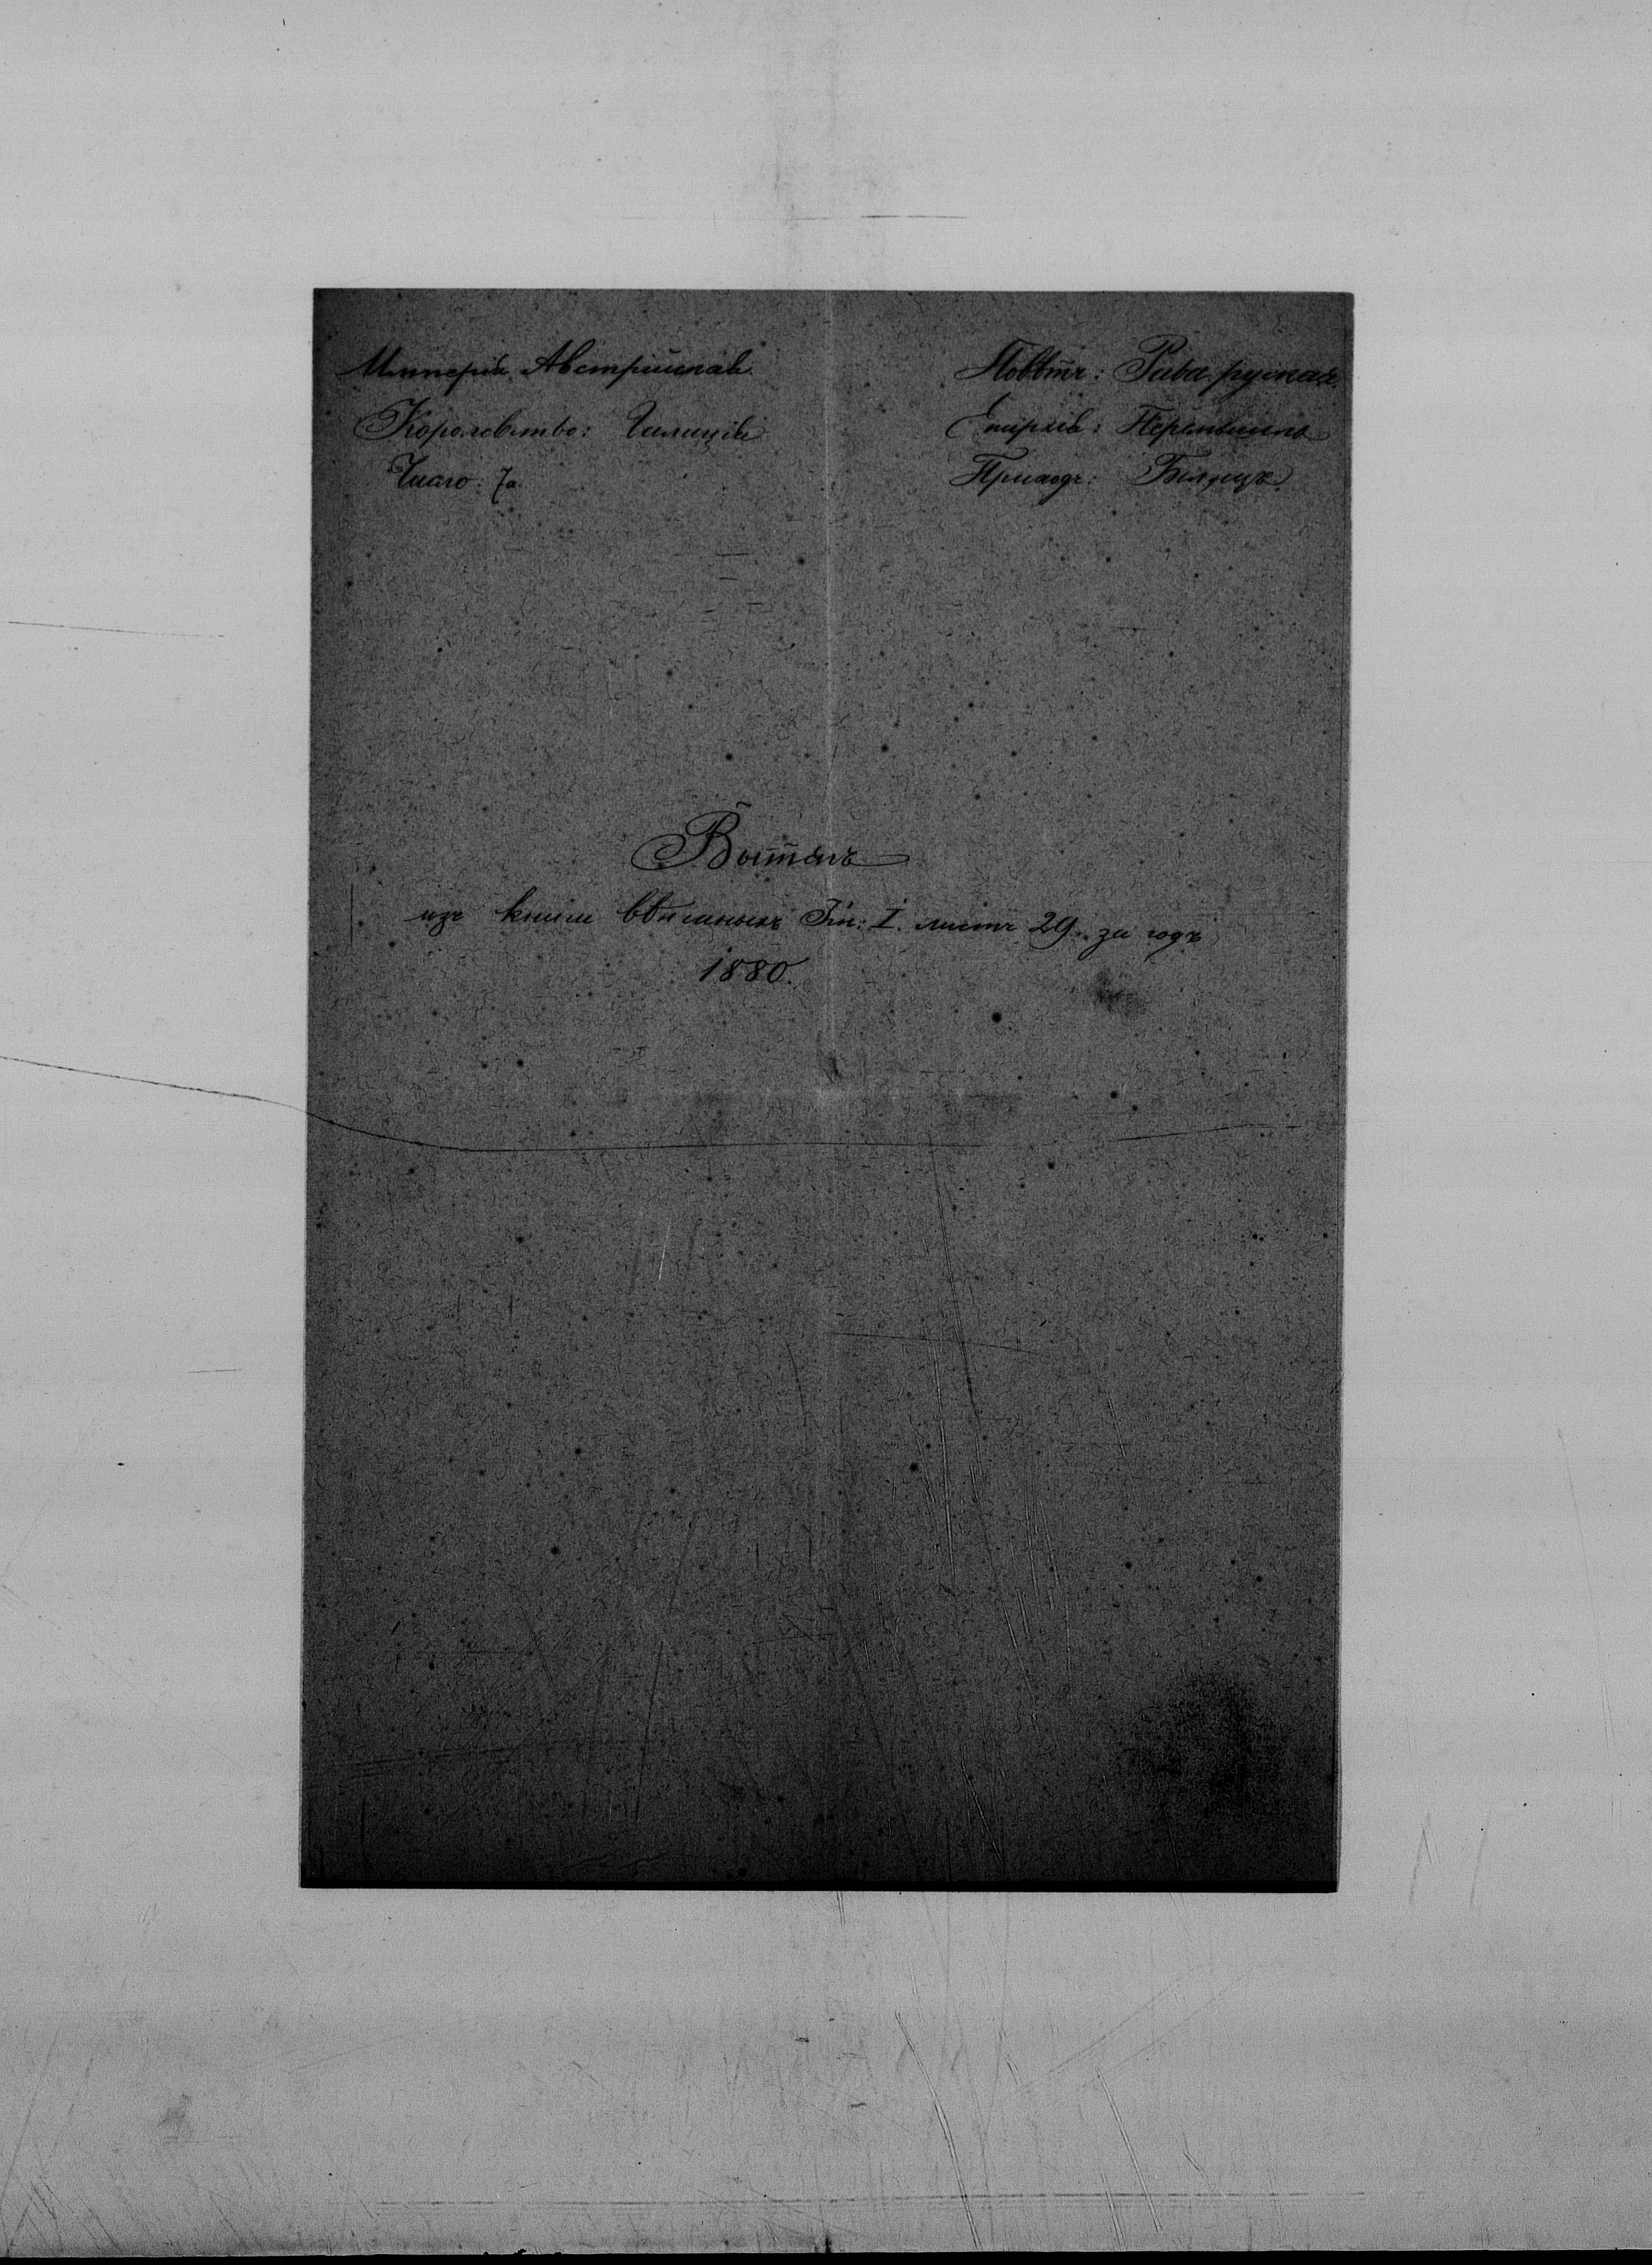 Имперія Австрійская
Королевство: Галиція
Число: 7а.
Повѣтъ: Рава руская.
Епархія: Перемышль
Приходъ:
Вытягъ
изъ книги вѣнчаныхъ Тм: I. листъ 29. за годъ
1880.